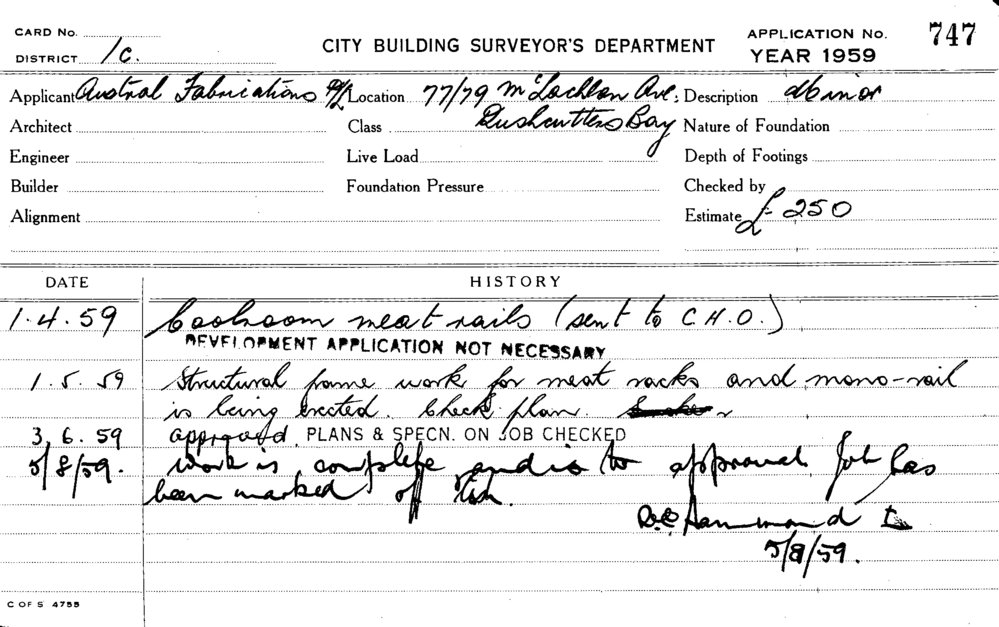 CARD No.
DISTRICT 1C.
CITY BUILDING SURVEYOR'S DEPARTMENT
APPLICATION No. 747
YEAR 1959
Applicant Austral Fabrications P/L Location 77/79 McLachlan Ave; Description Minor
Architect Class Rushcutters Bay Nature of Foundation
Engineer Live Load Depth of Footings
Builder Foundation Pressure Checked by
Alignment Estimate £250
DATE HISTORY
1.4.59 Coolroom meat rails (sent to C.H.O.)
DEVELOPMENT APPLICATION NOT NECESSARY
1.5.59 Structural frame work for meat racks and mono-rail
is being erected. Check plan.
3.6.59 approved. PLANS & SPECN. ON JOB CHECKED
5/8/59. Work is complete and is to approval Job has
been marked off
Hammond
5/8/59.
C OF S 4755